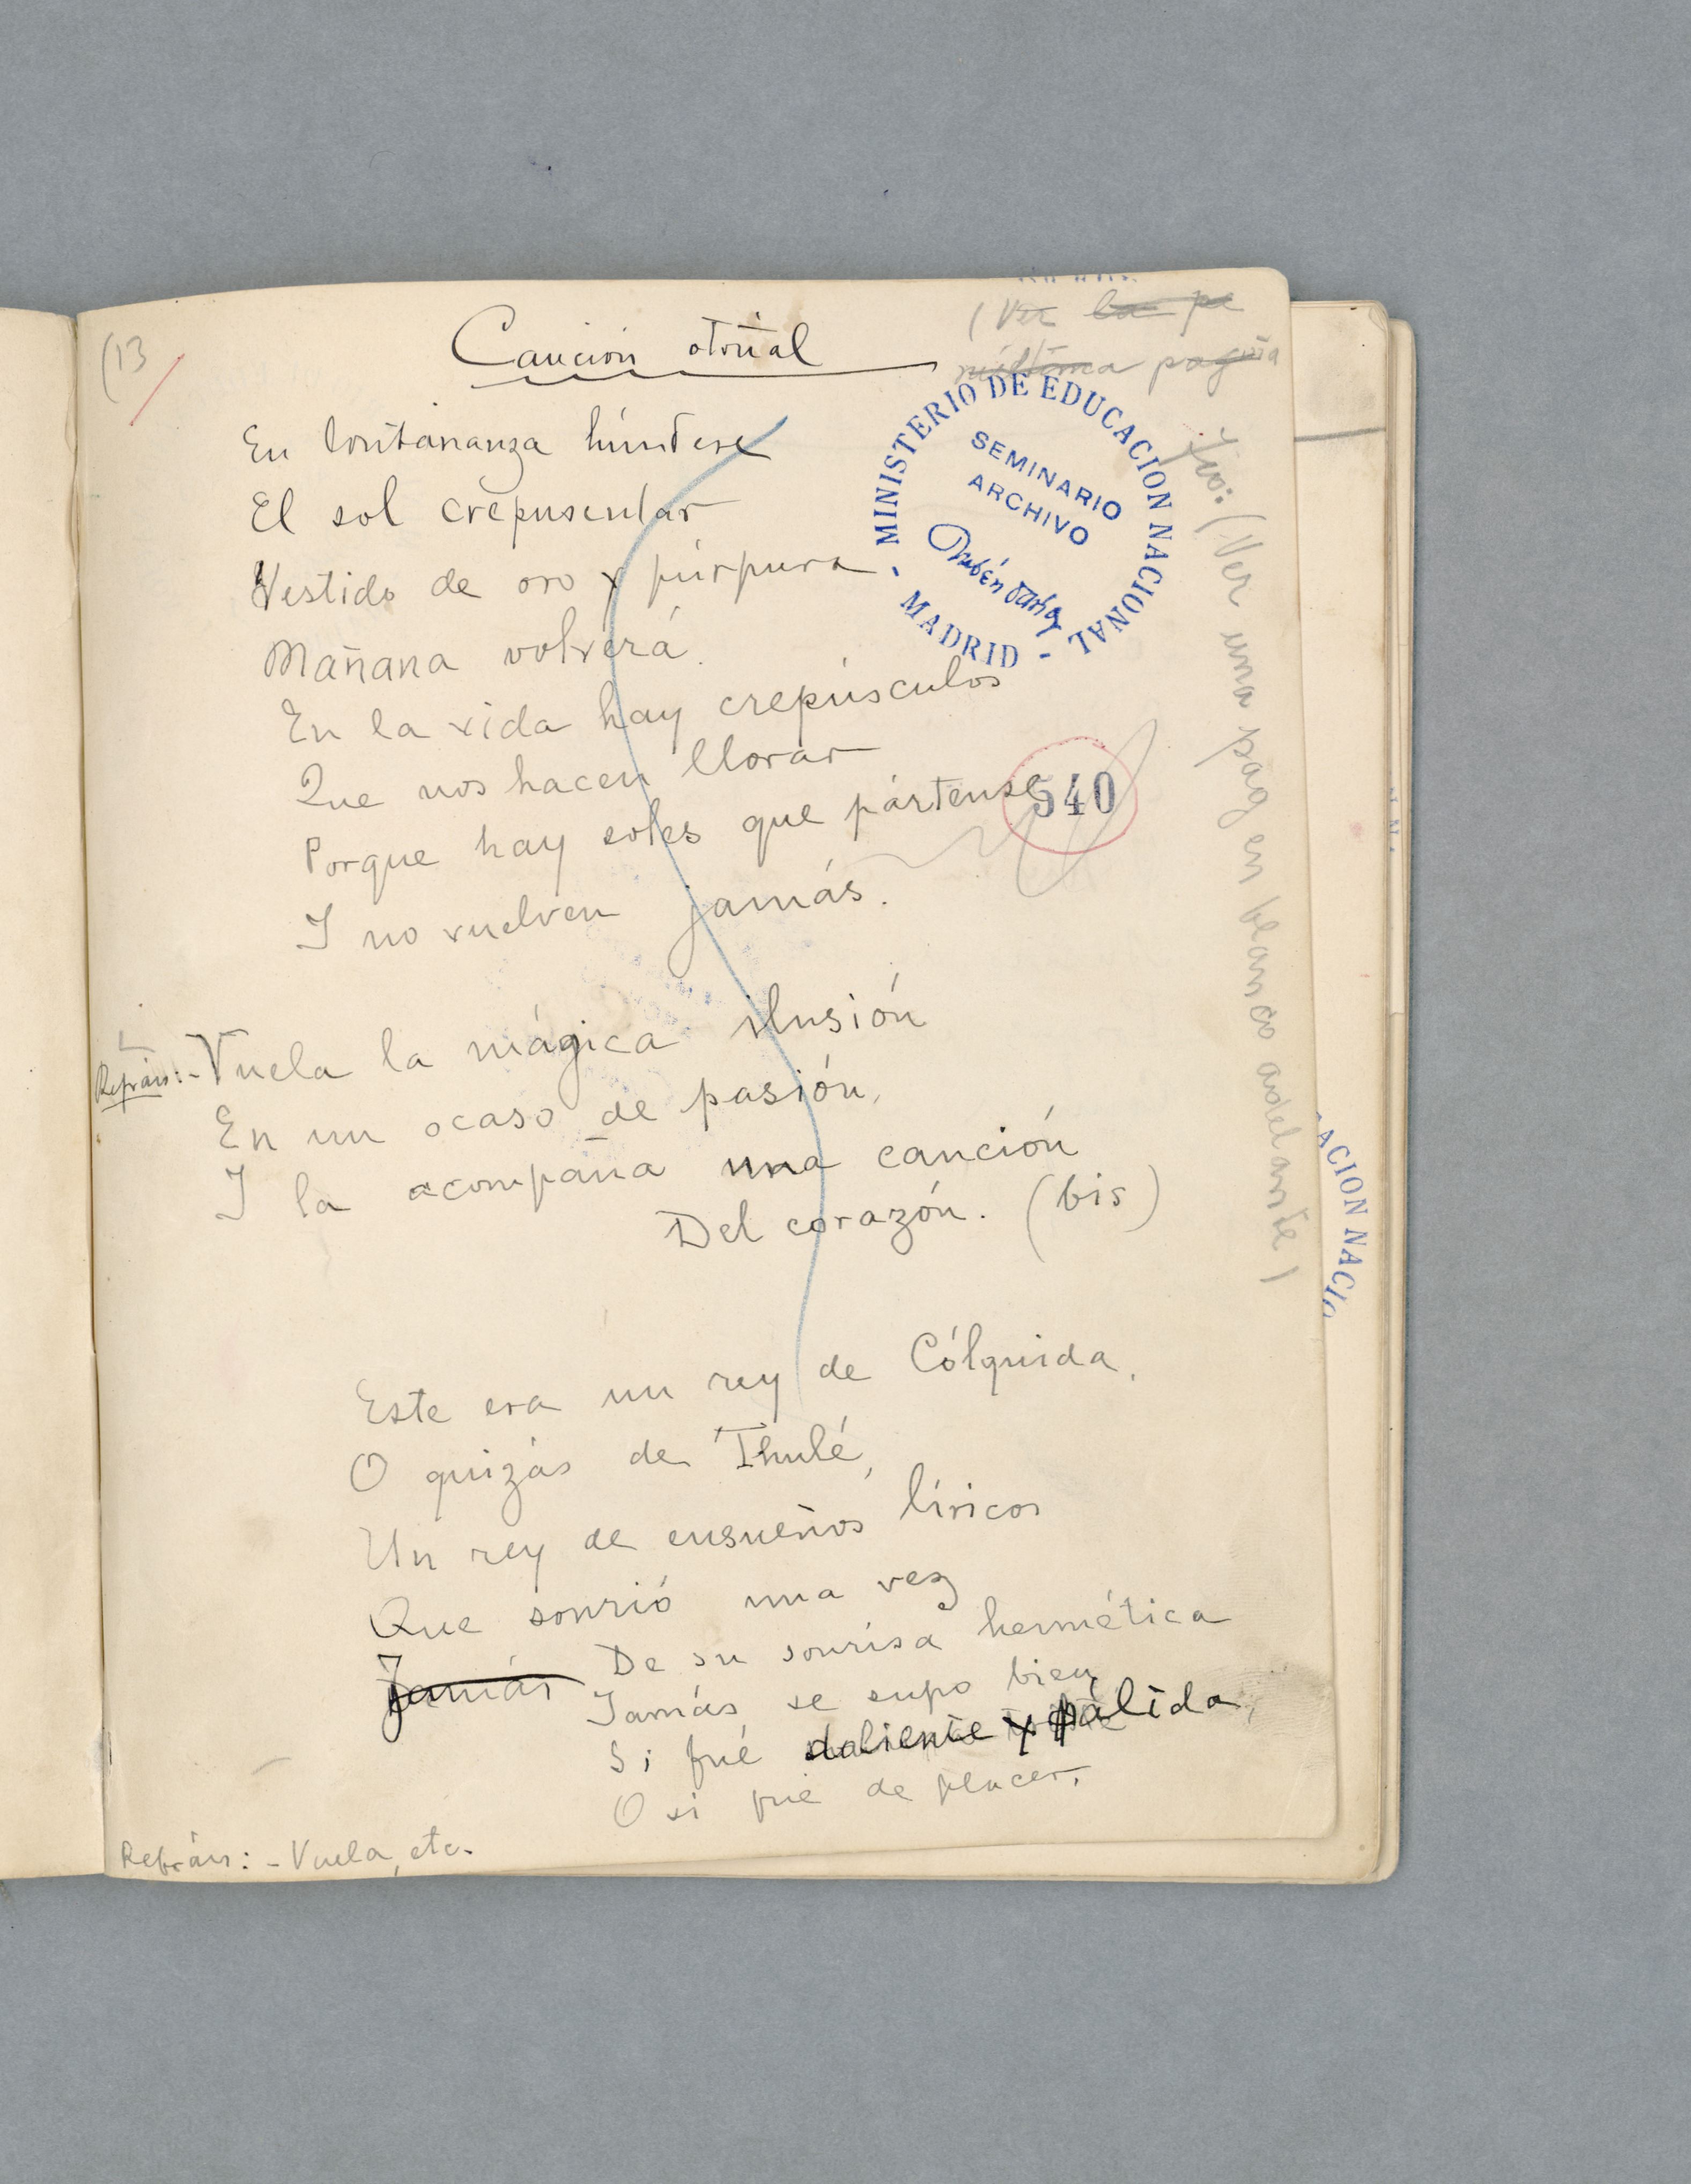 (13
Canción otoñal
(Ver la pe
núltima página
En lontananza húndese
El sol crepuscular
Vestido de oro y púrpura
Mañana volverá.
En la vida hay crepúsculos
Que nos hacen llorar
Porque hay soles que pártense
I no vuelven jamás.
MINISTERIO DE EDUCACION NACIONAL
SEMINARIO
ARCHIVO
Rubén Darío
- MADRID -
540
(Ver una pág en blanco adelante)
Refrán:- Vuela la mágica ilusión
En un ocaso de pasión,
I la acompaña una canción
Del corazón. (bis)
Este era un rey de Cólquida,
O quizás de Thulé,
Un rey de ensueños líricos
Que sonrió una vez
Jamás
De su sonrisa hermética
Jamás se supo bien
Si fué doliente y pálida,
O si fué de placer.
Refrán:- Vuela, etc.
ACION NACIO